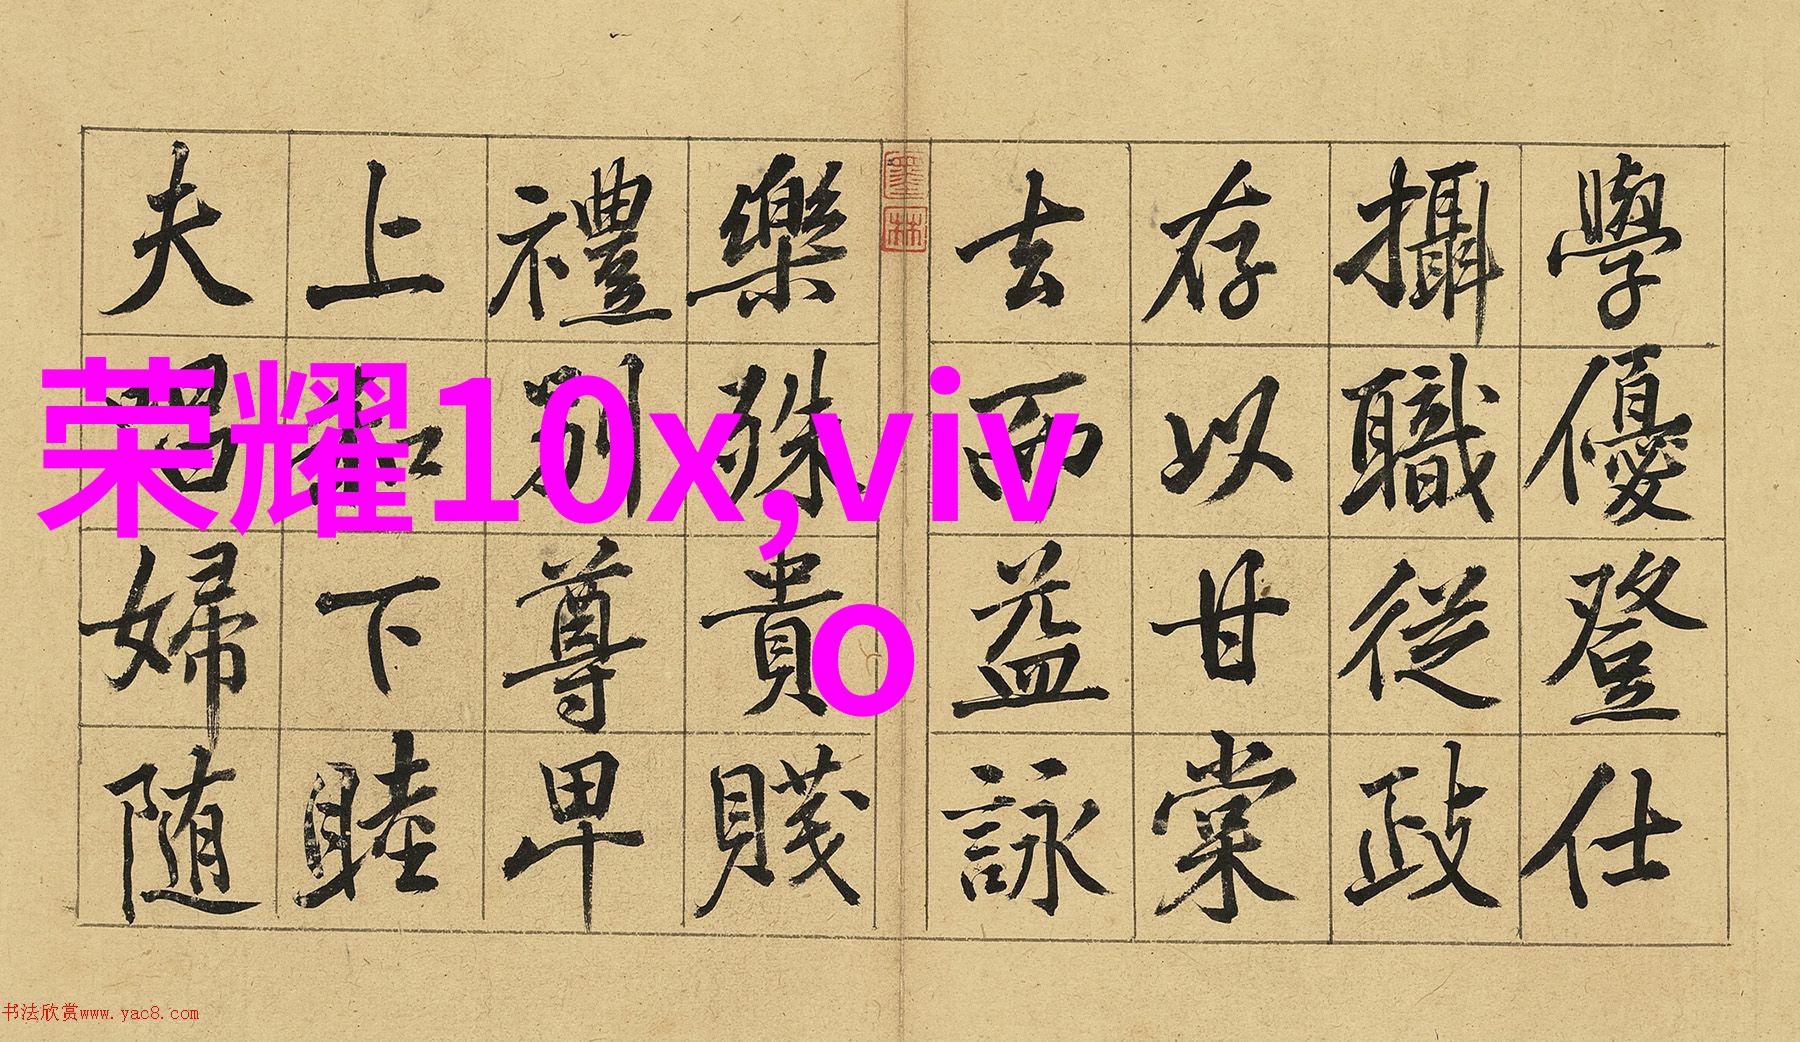 學優登仕
攝職從政
存以甘棠
去而益詠
樂殊貴賤
禮別尊卑
上和下睦
夫唱婦随
墨林
荣耀10x,viv
o
书法欣赏www.yac8.com